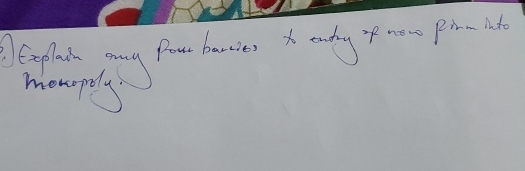 ?) Explain any four barries to entry of new firm into
monopoly.